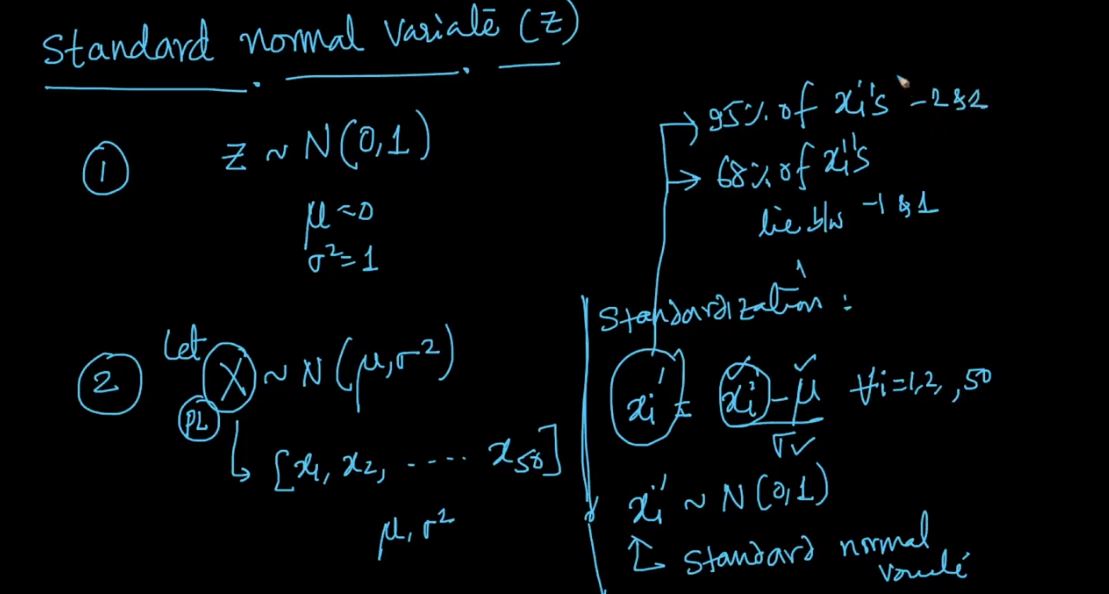 Standard normal variate (Z)
① Z ~ N(0,1)
μ=0
σ²=1
② Let X ~ N(μ,σ²)
PL
[x₁, x₂, ..... x₅₀]
μ, σ²
→ 95% of xᵢ''s -2 & 2
→ 68% of xᵢ''s
lie b/w -1 & 1
Standardization :
xᵢ' = xᵢ - μ ∀i=1,2, ,50
σ
xᵢ' ~ N(0,1)
Standard normal
variate